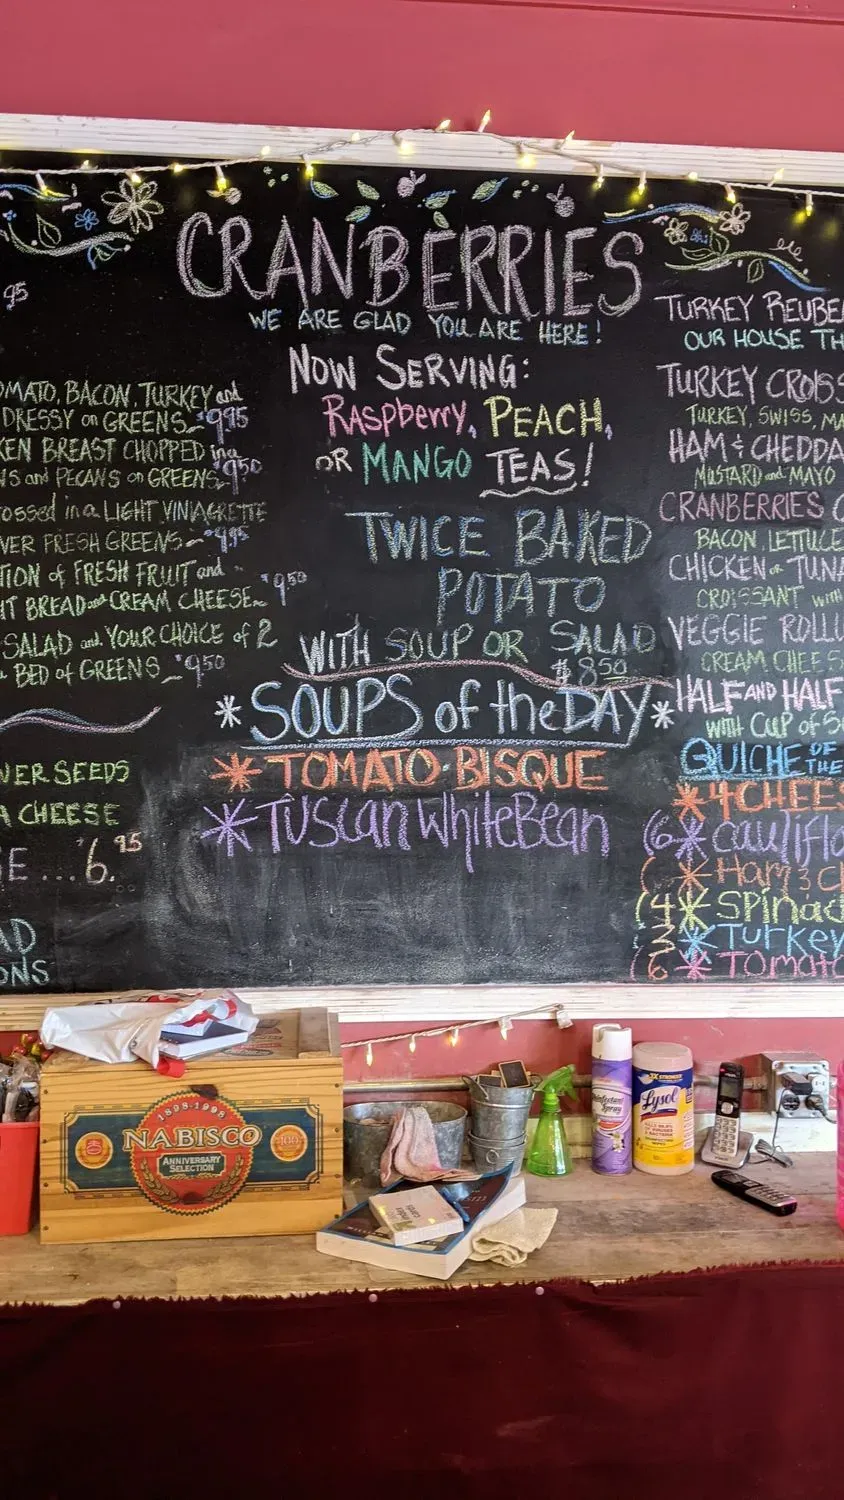 CRANBERRIES
WE ARE GLAD YOU ARE HERE!
NOW SERVING:
Raspberry, PEACH,
OR MANGO TEAS!
TWICE BAKED
POTATO
WITH SOUP OR SALAD
$8.50
* SOUPS of the DAY *
* TOMATO BISQUE
* Tuscan White Bean
95
OMATO, BACON, TURKEY and
DRESSY on GREENS $9.95
KEN BREAST CHOPPED in a
NS and PECANS on GREENS $9.50
TOSSED in a LIGHT VINIAGRETTE
VER FRESH GREENS
TION of FRESH FRUIT and
HT BREAD and CREAM CHEESE $9.50
SALAD and YOUR CHOICE of 2
BED of GREENS $9.50
WER SEEDS
A CHEESE
E ... $6.95
AD
ONS
TURKEY REUBE
OUR HOUSE TH
TURKEY CROISS
TURKEY, SWISS, MA
HAM & CHEDDA
MUSTARD and MAYO
CRANBERRIES C
BACON, LETTUCE
CHICKEN or TUNA
CROISSANT with
VEGGIE ROLLU
CREAM CHEES
HALF AND HALF
WITH CUP of SO
QUICHE OF THE
* 4 CHEES
(6 * Cauliflo
( * Ham & C
(4 * Spinac
3 * Turkey
(6 * Tomato
1898-1998
NABISCO
100
ANNIVERSARY
SELECTION
Index
Cards
Disinfectant
Spray
3X STRONGER
Lysol